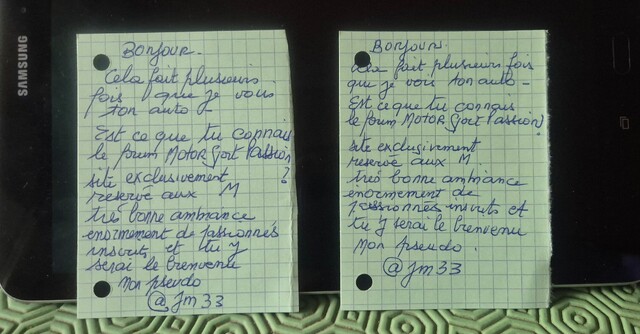 SAMSUNG
Bonjour.
Cela fait plusieurs
fois que je vous
ton auto -
Est ce que tu connais
le forum MOTOR Sport Passion
site exclusivement ?
reservé aux M
très bonne ambiance
enormement de passionnés
inscrits et tu y
serai le bienvenu
Mon pseudo
@jm33
Bonjour.
Cela fait plusieurs fois
que je vois ton auto -
Est ce que tu connais
le forum MOTOR Sport Passion?
site exclusivement
reservé aux M.
très bonne ambiance
enormement de
passionnés inscrits et
tu y serai le bienvenu
Mon pseudo.
@jm33